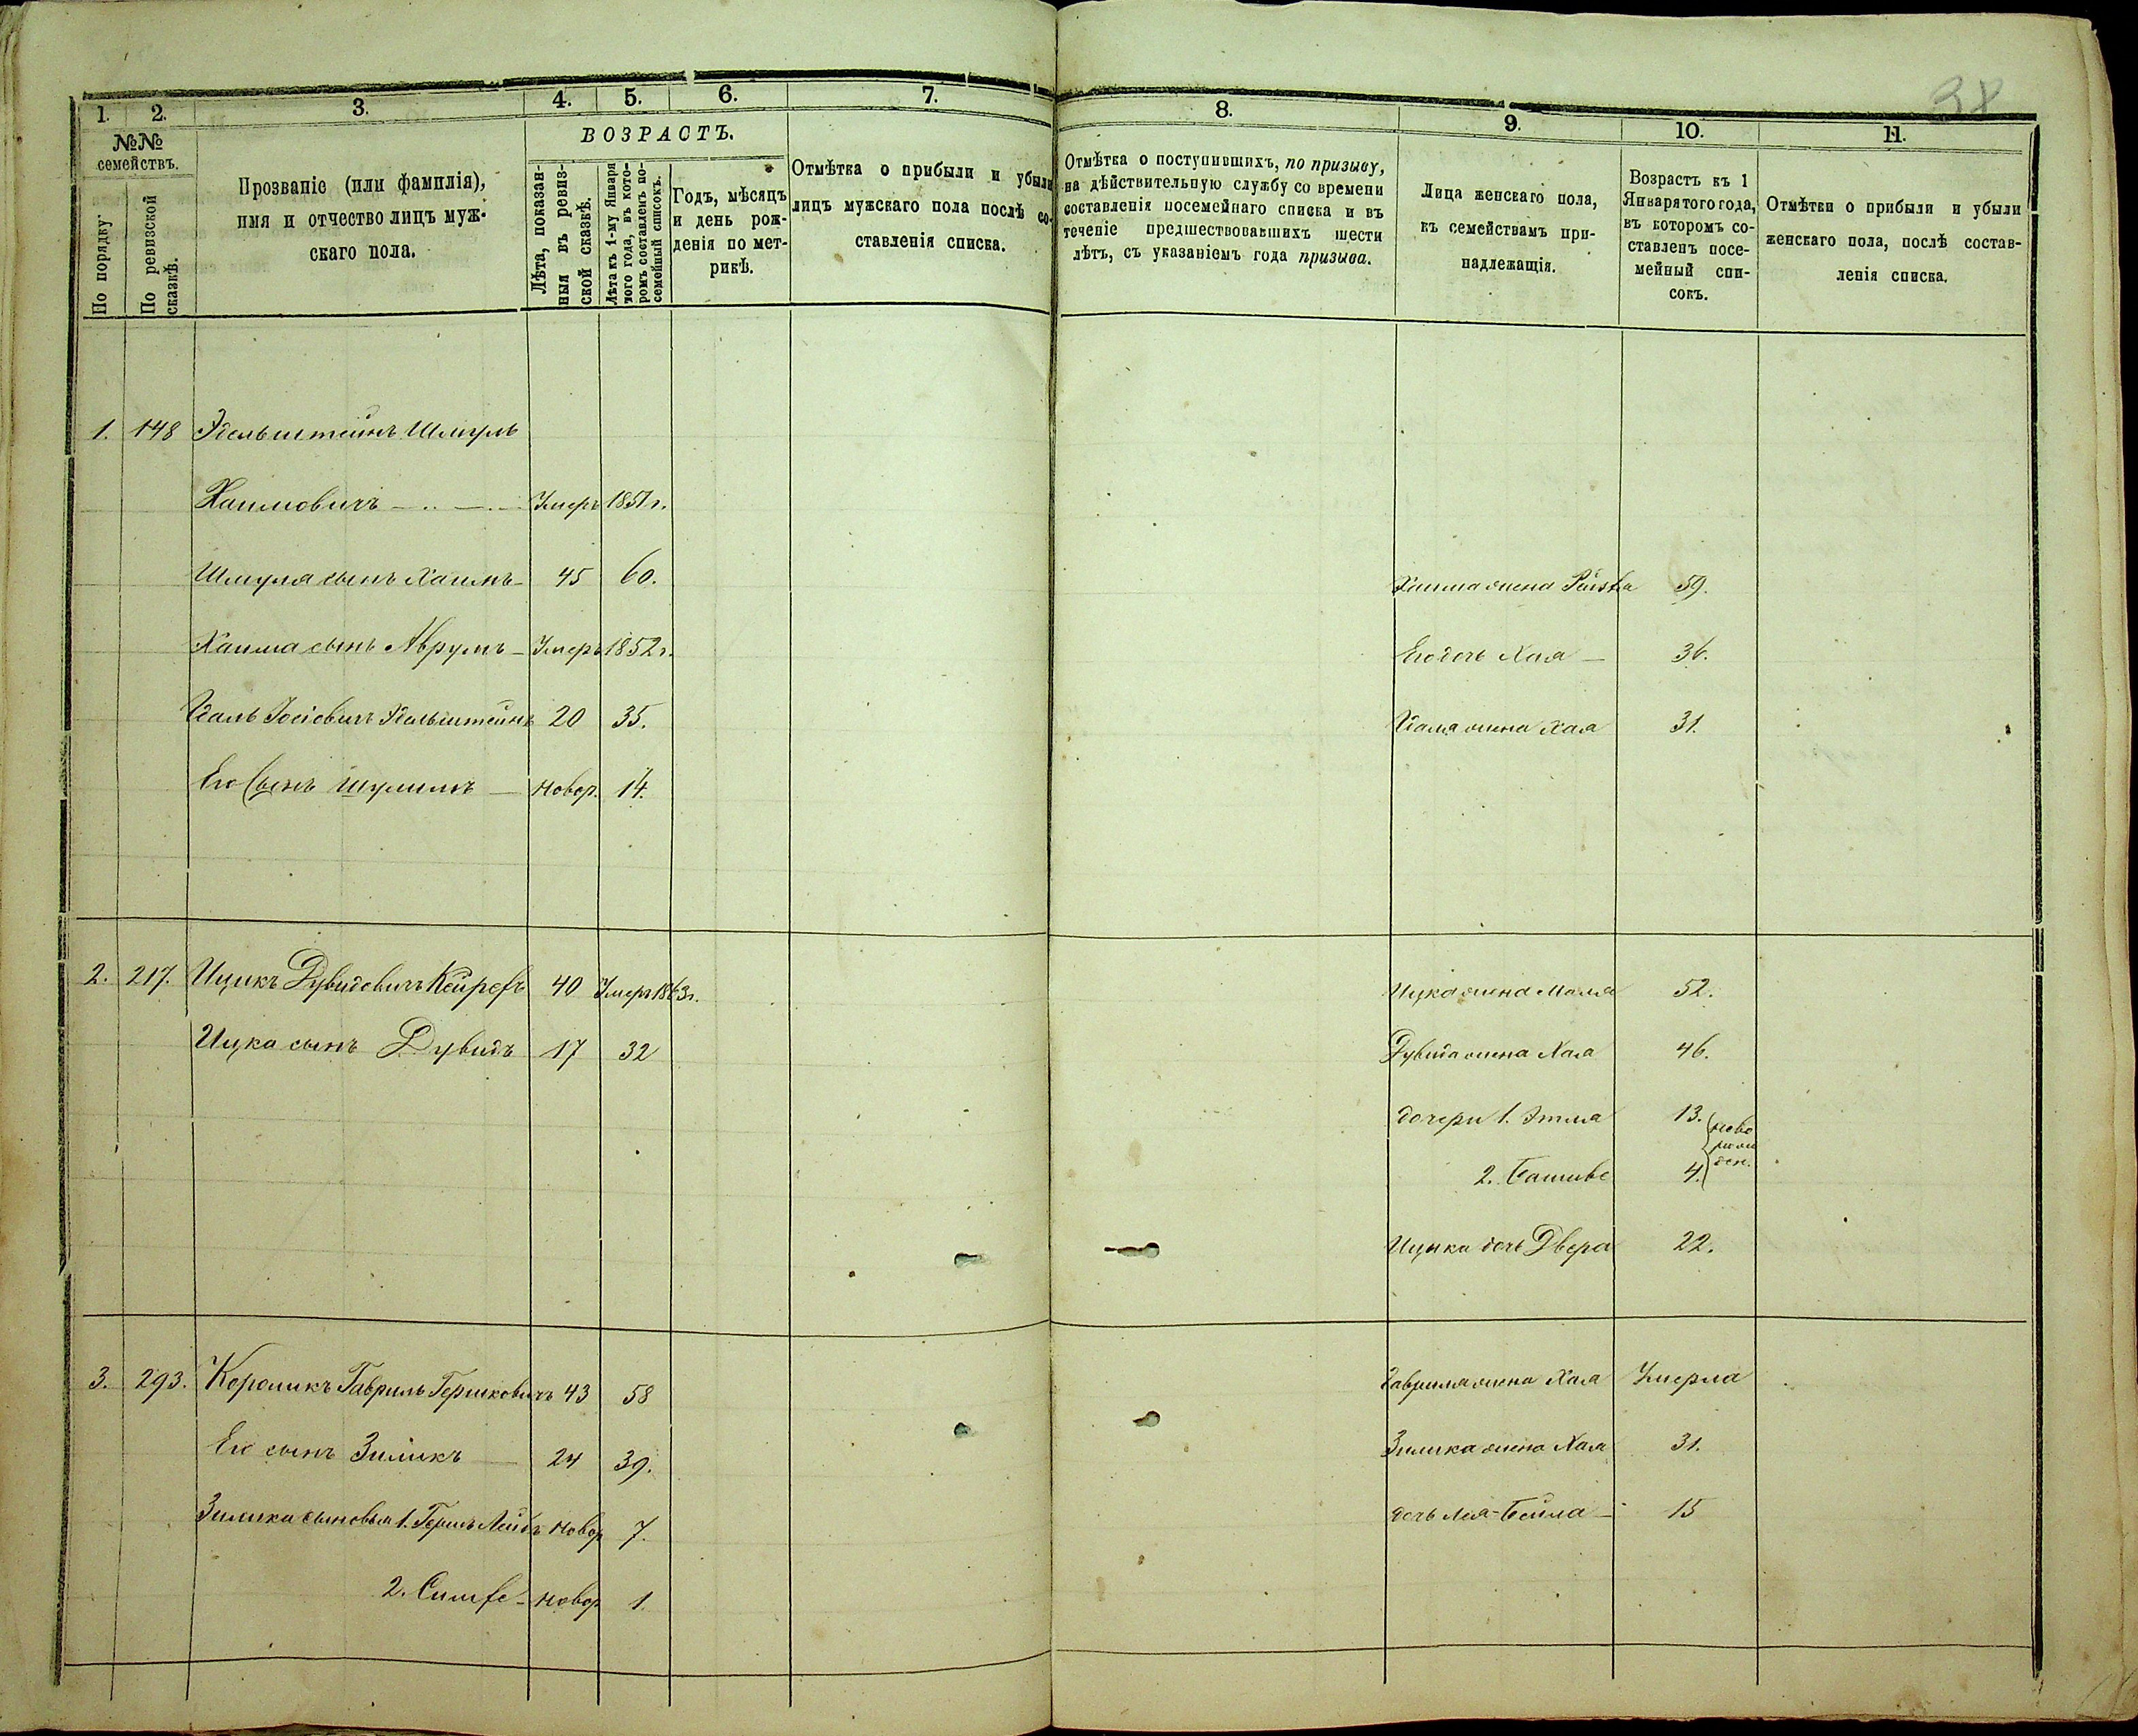 38
1. 2. 3. 4. 5. 6. 7. 8. 9. 10. 11.
№№ семействъ.
По порядку
По ревизской сказкѣ.
Прозваніе (или фамилія),
имя и отчество лицъ муж-
скаго пола.
ВОЗРАСТЪ.
Лѣта, показан-
ныя въ ревиз-
ской сказкѣ.
Лѣта къ 1-му Января
того года, въ кото-
ромъ составленъ по-
семейный списокъ.
Годъ, мѣсяцъ
и день рож-
денія по мет-
рикѣ.
Отмѣтка о прибыли и убыли
лицъ мужскаго пола послѣ со-
ставленія списка.
Отмѣтка о поступившихъ, по призыву,
на дѣйствительную службу со времени
составленія посемейнаго списка и въ
теченіе предшествовавшихъ шести
лѣтъ, съ указаніемъ года призыва.
Лица женскаго пола,
къ семействамъ при-
надлежащія.
Возрастъ къ 1
Января того года,
въ которомъ со-
ставленъ посе-
мейный спи-
сокъ.
Отмѣтки о прибыли и убыли
женскаго пола, послѣ состав-
ленія списка.
1. 148 Эдельштейнъ Шмуль
Хаимовичъ Умеръ 1851 г.
Шмуля сынъ Хаимъ 45 60. Хаима жена Рейзя 59.
Хаима сынъ Аврумъ Умеръ 1852 г. Его дочь Хая 36.
Идаль Іосіовичъ Эдельштейнъ 20 35. Идаля жена Хая 31.
Его Сынъ Шулимъ Новор. 14.
2. 217. Ицикъ Дувидовичъ 40 Умеръ 1863 г. Ицка жена Маля 52.
Ицка сынъ Дувидъ 17 32 Дувида жена Хая 46.
дочери 1. Этля 13.
2. Башиве 4.
новорожден.
Ицька дочь Двера 22.
3. 293. Короликъ Гавриль Гершковичъ 43 58 Гавриля жена Хая Умерла
Его сынъ Зиликъ 24 39. Зилика жена Хая 31.
Зилика сыновья 1. Гершъ Лейбъ Новор 7. дочь Лея-Бейла 15
2. Симхе Новор 1.